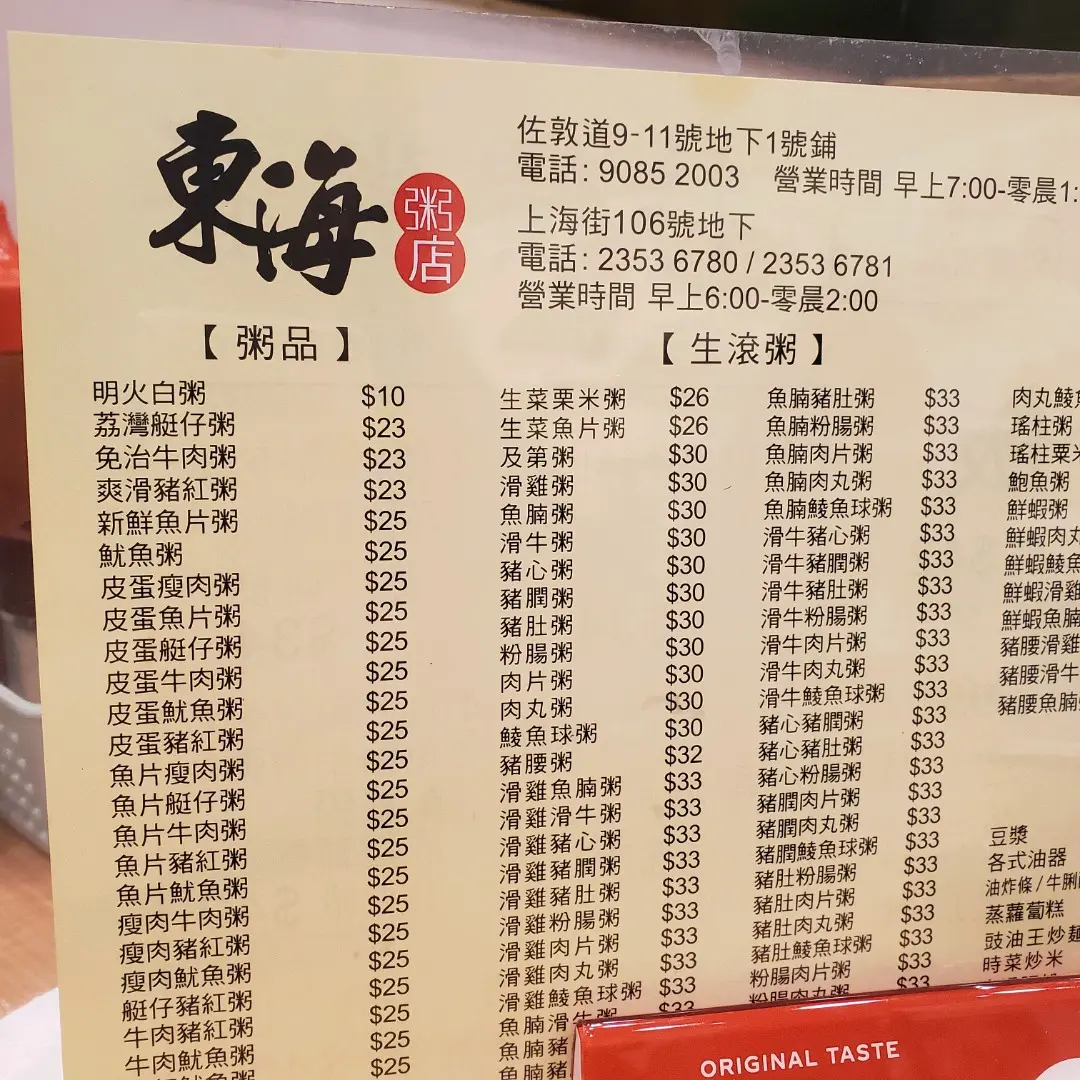 東海
粥店
佐敦道9-11號地下1號鋪
電話: 9085 2003 營業時間 早上7:00-零晨1:
上海街106號地下
電話: 2353 6780 / 2353 6781
營業時間 早上6:00-零晨2:00
【 粥品 】
明火白粥 $10
荔灣艇仔粥 $23
免治牛肉粥 $23
爽滑豬紅粥 $23
新鮮魚片粥 $25
魷魚粥 $25
皮蛋瘦肉粥 $25
皮蛋魚片粥 $25
皮蛋艇仔粥 $25
皮蛋牛肉粥 $25
皮蛋魷魚粥 $25
皮蛋豬紅粥 $25
魚片瘦肉粥 $25
魚片艇仔粥 $25
魚片牛肉粥 $25
魚片豬紅粥 $25
魚片魷魚粥 $25
瘦肉牛肉粥 $25
瘦肉豬紅粥 $25
瘦肉魷魚粥 $25
艇仔豬紅粥 $25
牛肉豬紅粥 $25
牛肉魷魚粥 $25
【 生滾粥 】
生菜栗米粥 $26
生菜魚片粥 $26
及第粥 $30
滑雞粥 $30
魚腩粥 $30
滑牛粥 $30
豬心粥 $30
豬膶粥 $30
豬肚粥 $30
粉腸粥 $30
肉片粥 $30
肉丸粥 $30
鯪魚球粥 $30
豬腰粥 $32
滑雞魚腩粥 $33
滑雞滑牛粥 $33
滑雞豬心粥 $33
滑雞豬膶粥 $33
滑雞豬肚粥 $33
滑雞粉腸粥 $33
滑雞肉片粥 $33
滑雞肉丸粥 $33
滑雞鯪魚球粥 $33
魚腩滑牛粥 $33
魚腩豬
魚腩豬
魚腩豬肚粥 $33
魚腩粉腸粥 $33
魚腩肉片粥 $33
魚腩肉丸粥 $33
魚腩鯪魚球粥 $33
滑牛豬心粥 $33
滑牛豬膶粥 $33
滑牛豬肚粥 $33
滑牛粉腸粥 $33
滑牛肉片粥 $33
滑牛肉丸粥 $33
滑牛鯪魚球粥 $33
豬心豬膶粥 $33
豬心豬肚粥 $33
豬心粉腸粥 $33
豬膶肉片粥 $33
豬膶肉丸粥 $33
豬膶鯪魚球粥 $33
豬肚粉腸粥 $33
豬肚肉片粥 $33
豬肚肉丸粥 $33
豬肚鯪魚球粥 $33
粉腸肉片粥 $33
粉腸肉丸粥 $33
肉丸鯪
瑤柱粥
瑤柱粟米
鮑魚粥
鮮蝦粥
鮮蝦肉丸
鮮蝦鯪魚
鮮蝦滑雞
鮮蝦魚腩
豬腰滑雞
豬腰滑牛
豬腰魚腩
豆漿
各式油器
油炸條 / 牛脷
蒸蘿蔔糕
豉油王炒麵
時菜炒米
ORIGINAL TASTE